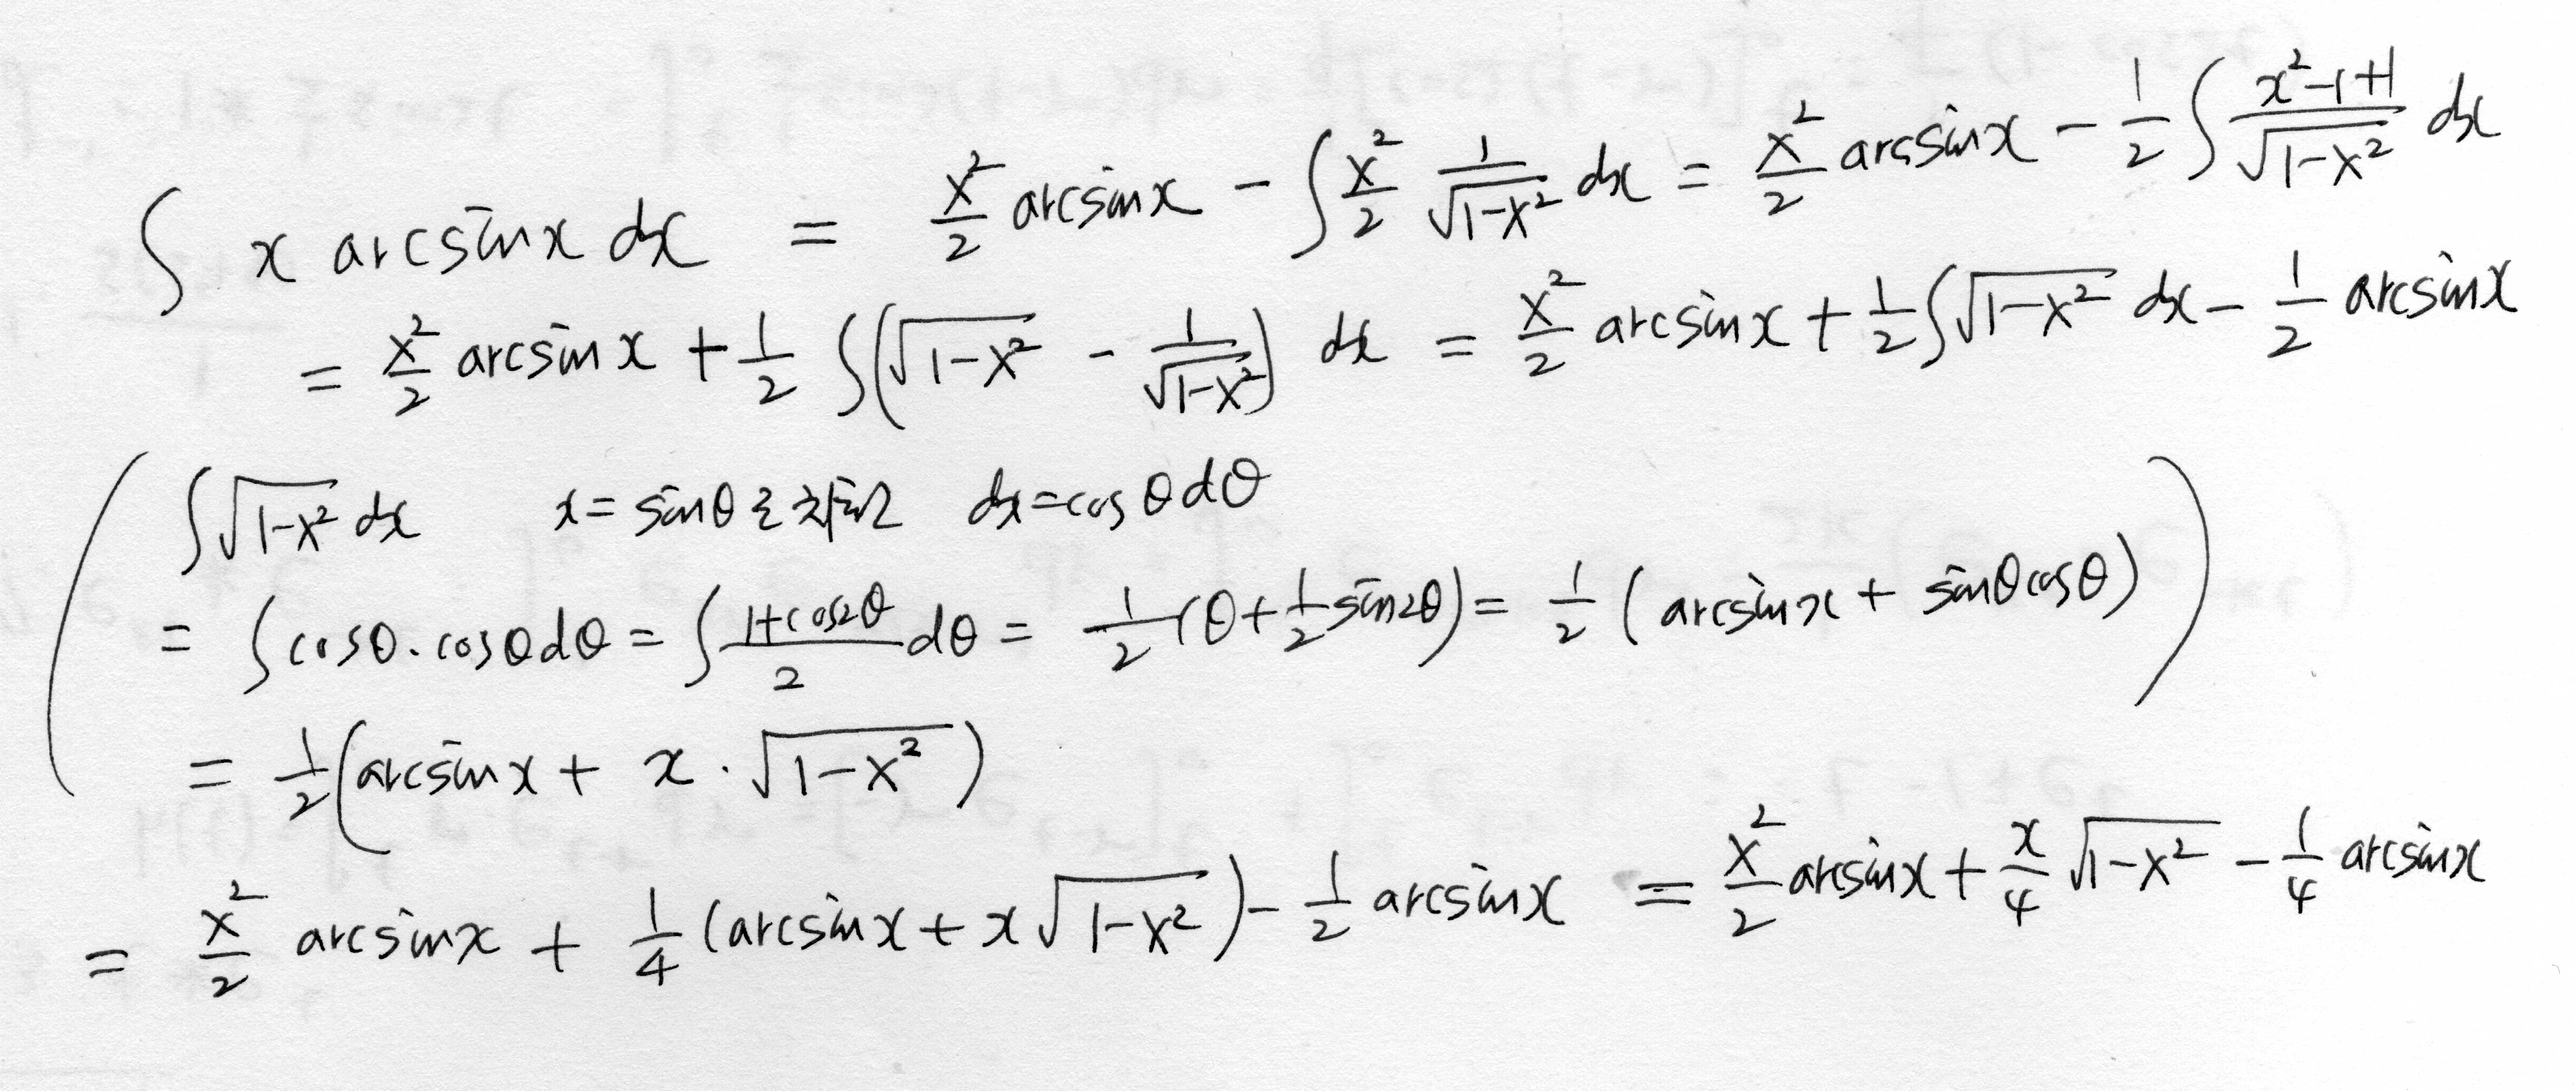 ∫ x arcsinx dx = x²/2 arcsinx - ∫ x²/2 1/√(1-x²) dx = x²/2 arcsinx - 1/2 ∫ (x²-1+1)/√(1-x²) dx
= x²/2 arcsinx + 1/2 ∫(√(1-x²) - 1/√(1-x²)) dx = x²/2 arcsinx + 1/2 ∫√(1-x²) dx - 1/2 arcsinx
( ∫√(1-x²) dx x = sinθ로 치환 dx = cosθdθ
= ∫cosθ·cosθdθ = ∫ (1+cos2θ)/2 dθ = 1/2 (θ + 1/2 sin2θ) = 1/2 (arcsinx + sinθcosθ)
= 1/2 (arcsinx + x·√(1-x²)) )
= x²/2 arcsinx + 1/4 (arcsinx + x√(1-x²)) - 1/2 arcsinx = x²/2 arcsinx + x/4 √(1-x²) - 1/4 arcsinx